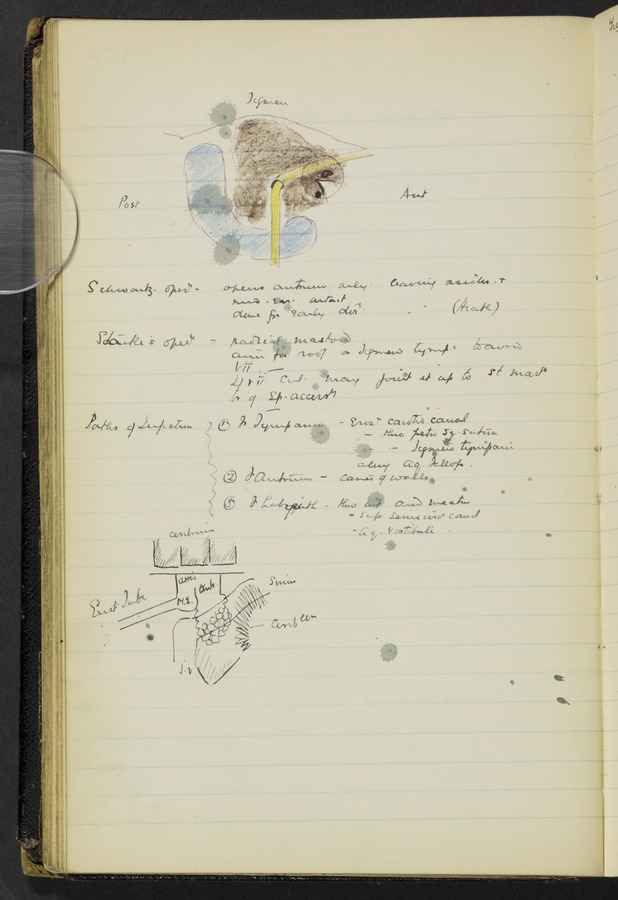 Tegmen
Post
Ant
Schwartz oper - opens antrum only leaving ossicles +
intact
done for early dis (Heath)
Stacke's oper - radical mastoid
roof Tegmen Tymp: to avoid
VII
If VII cut may joint it up to st mast
br of Sp. access
Paths of Infection ① fr Tympanum - Eros carotid canal
- thro petro sq. suture
- Tegmen tympani
along aq. Fallop.
② fr Antrum - caries of walls
③ fr Labyrinth - thro int aud meatus
- Sup. semicirc canal
- aq. vestibuli
cerebrum
Attic
Antr
M.E.
Eust Tube
Sinus
Cerebllm
J.V